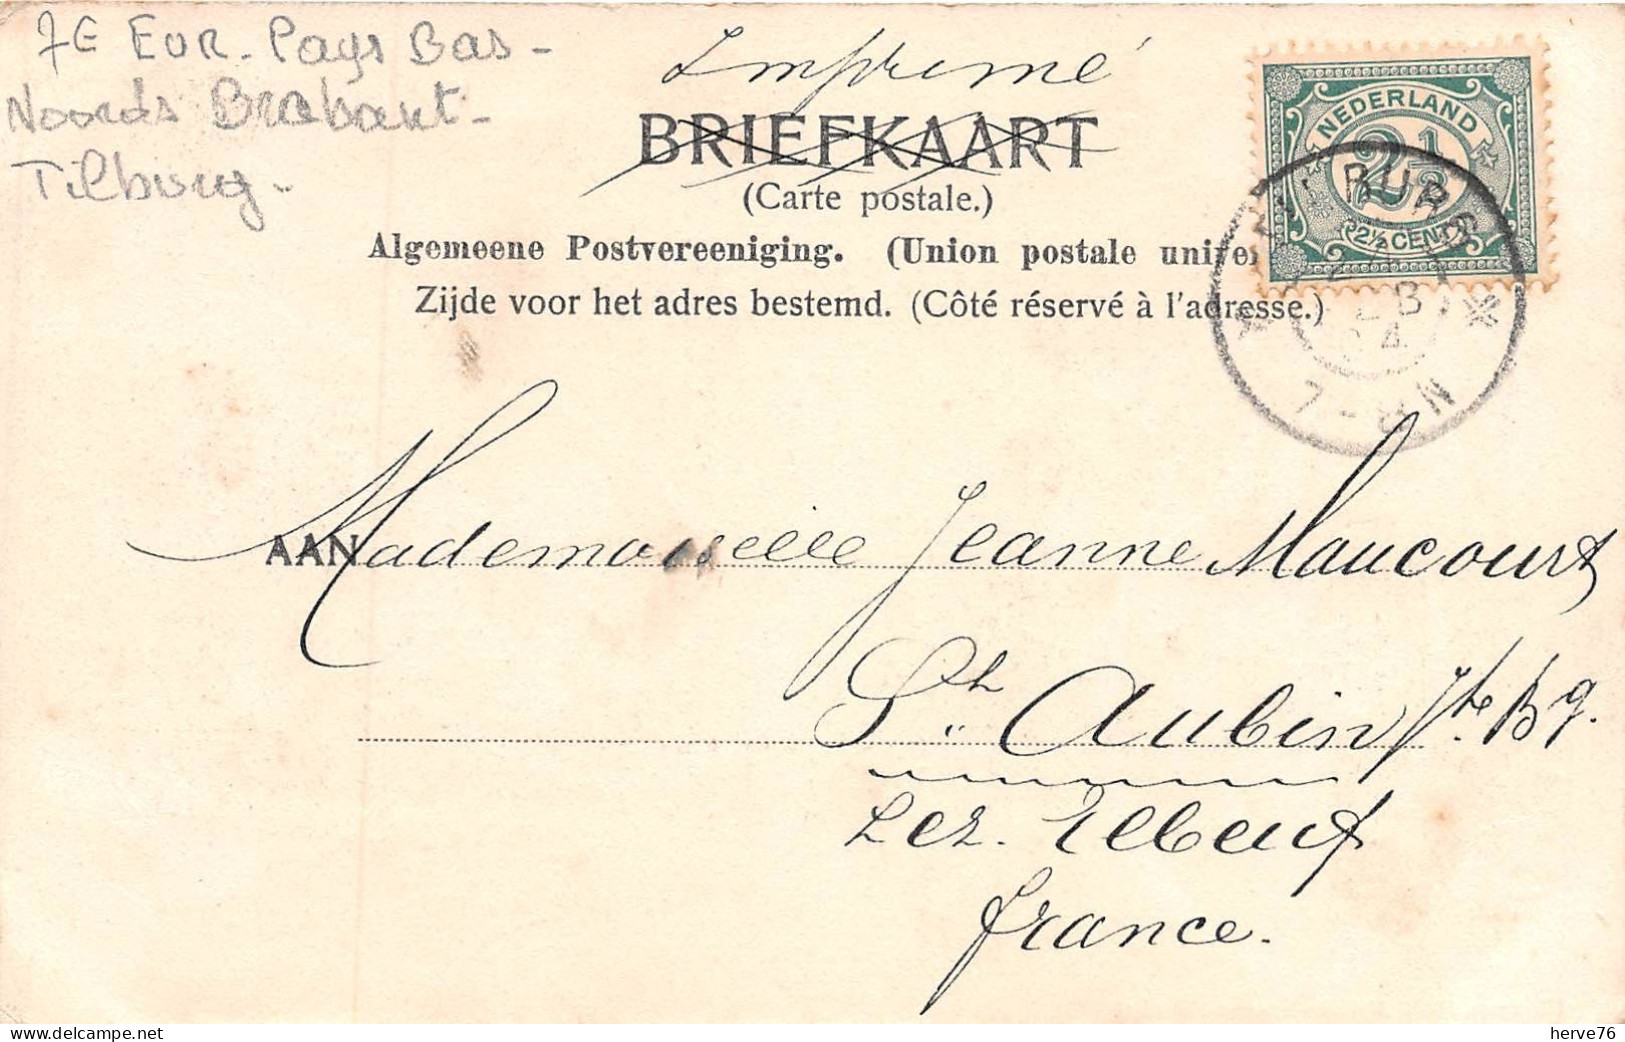 7E EUR. Pays Bas -
Noords Brabant -
Tilburg -
Imprimé
BRIEFKAART
(Carte postale.)
Algemeene Postvereeniging. (Union postale unive
Zijde voor het adres bestemd. (Côté réservé à l'adresse.)
NEDERLAND
2½
2½ CENT
BURG
7-8N
AAN Mademoiselle Jeanne Maucourt
St Aubin Jte Bg.
Lez. Elbeuf
france.
herve76